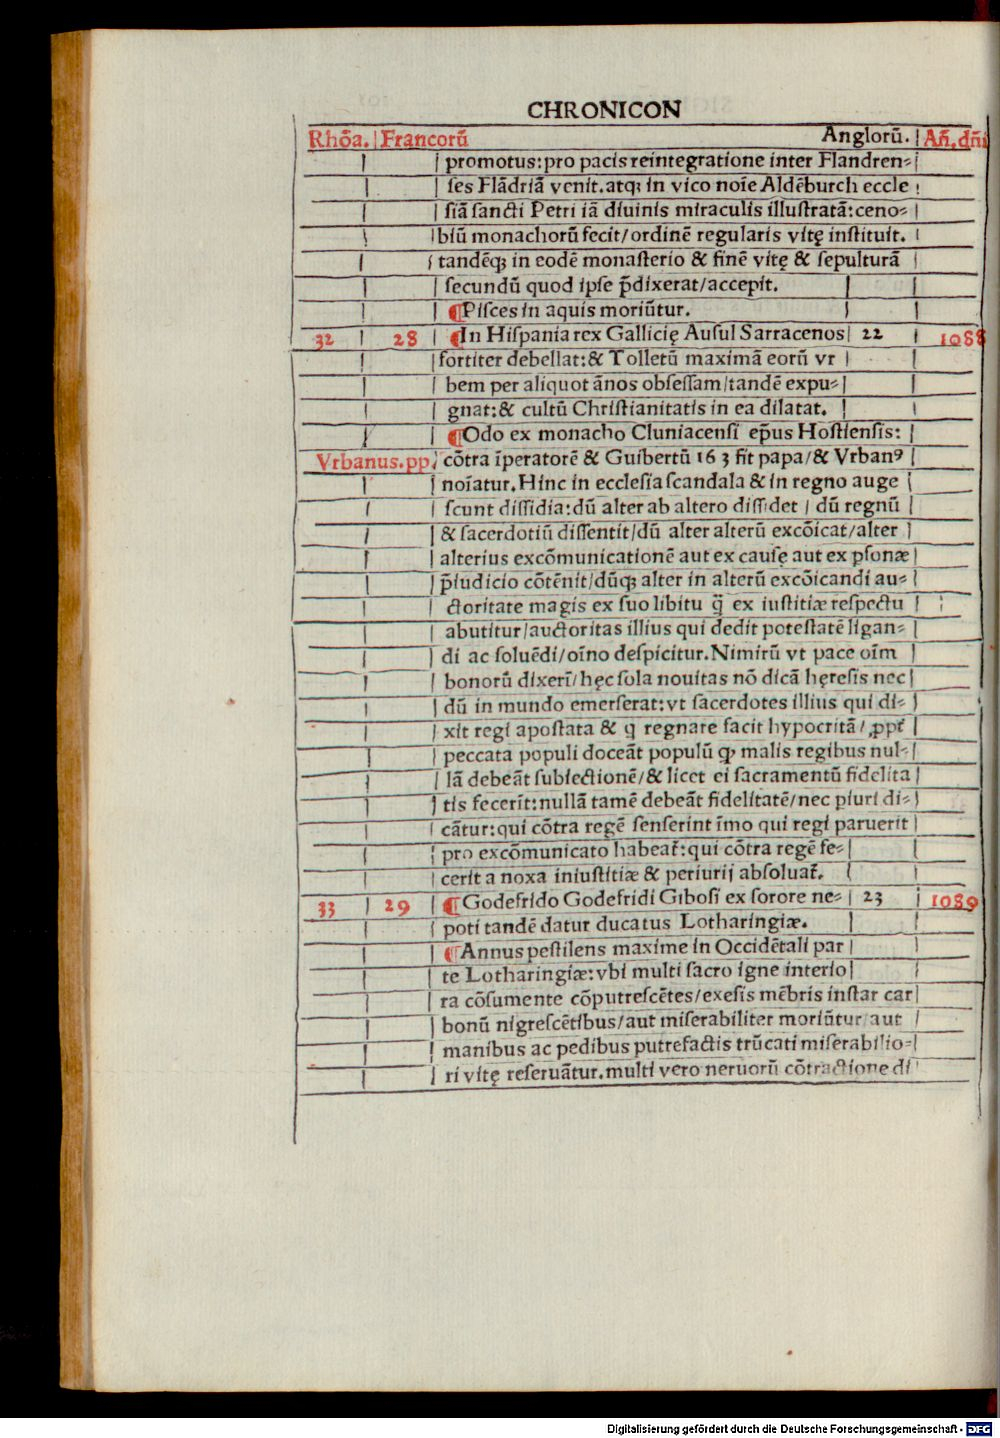 CHRONICON
Rhōa. Francorū Anglorū. Añ. dñi
promotus: pro pacis reintegratione inter Flandren⸗
ſes Flādriā venit. atq; in vico noīe Aldēburch eccle
ſiā ſancti Petri iā diuinis miraculis illuſtratā: ceno⸗
biū monachorū fecit/ordinē regularis vitę inſtituit.
tandēq; in eodē monaſterio & finē vitę & ſepulturā
ſecundū quod ipſe p̄dixerat/accepit.
¶Piſces in aquis moriūtur.
32 28 ¶In Hiſpania rex Gallicię Auſul Sarracenos 22 1088
fortiter debellat: & Tolletū maximā eorū vr
bem per aliquot ānos obſeſſam/tandē expu⸗
gnat: & cultū Chriſtianitatis in ea dilatat.
¶Odo ex monacho Cluniacenſi ep̄us Hoſtienſis:
Vrbanus.pp. cōtra īperatorē & Guibertū 163 fit papa/& Vrbanꝰ
noīatur. Hinc in eccleſia ſcandala & in regno auge
ſcunt diſſidia: dū alter ab altero diſſidet / dū regnū
& ſacerdotiū diſſentit/dū alter alterū excōicat/alter
alterius excōmunicationē aut ex cauſę aut ex pſonæ
p̄iudicio cōtēnit/dūq; alter in alterū excōicandi au⸗
ctoritate magis ex ſuo libitu q̄ ex iuſtitiæ reſpectu
abutitur/auctoritas illius qui dedit poteſtatē ligan⸗
di ac ſoluēdi/oīno deſpicitur. Nimirū vt pace oīm
bonorū dixerī/hęc ſola nouitas nō dicā hęreſis nec
dū in mundo emerſerat: vt ſacerdotes illius qui di⸗
xit regi apoſtata & q regnare facit hypocritā/ ꝓpt̄
peccata populi doceāt populū ꝙ malis regibus nul⸗
lā debeāt ſubiectionē/& licet ei ſacramentū fidelita
tis fecerīt: nullā tamē debeāt fidelitatē/nec piuri di⸗
cātur: qui cōtra regē ſenſerint īmo qui regi paruerit
pro excōmunicato habeat̄: qui cōtra regē fe⸗
cerit a noxa iniuſtitiæ & periurij abſoluat̄.
33 29 ¶Godefrido Godefridi Giboſi ex ſorore ne⸗ 23 1089
poti tandē datur ducatus Lotharingiæ.
¶Annus peſtilens maxime in Occidētali par
te Lotharingiæ: vbi multi ſacro igne interio
ra cōſumente cōputreſcētes/exeſis mēbris inſtar car
bonū nigreſcētibus/aut miſerabiliter moriūtur/aut
manibus ac pedibus putrefactis trūcati miſerabilio⸗
ri vitę reſeruātur. multi vero neruorū cōtractione di
Digitalisierung gefördert durch die Deutsche Forschungsgemeinschaft - DFG